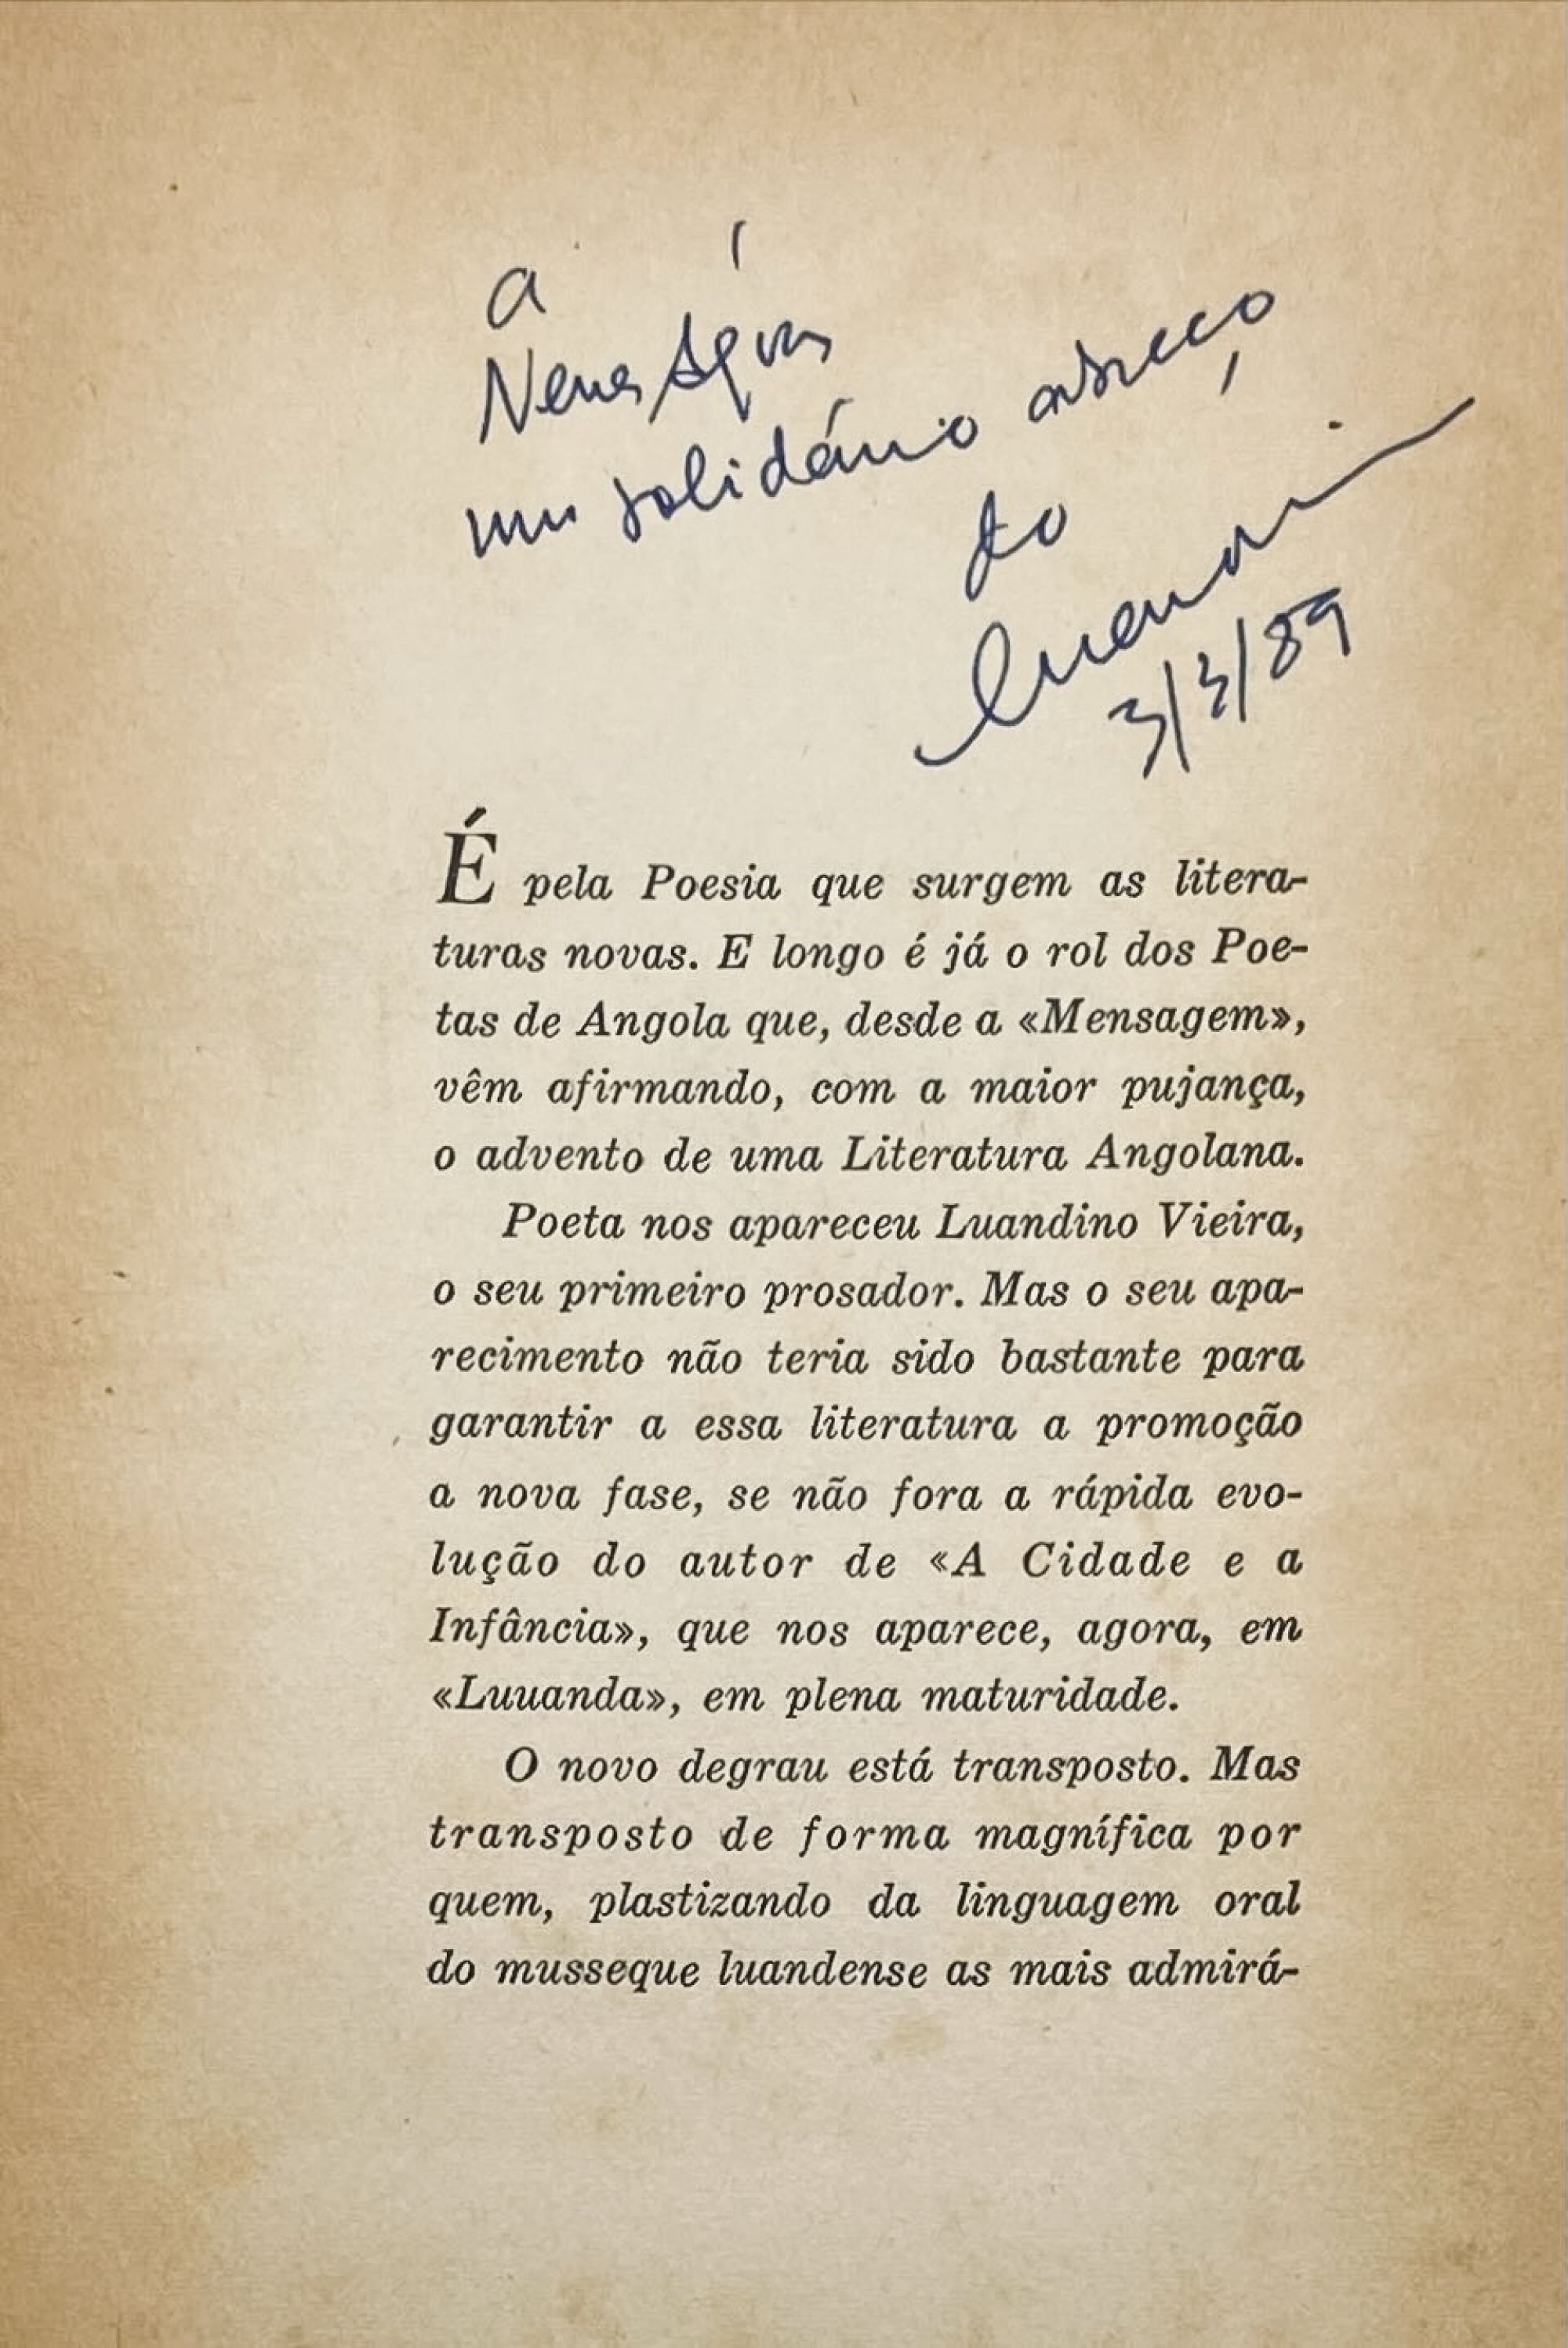 a
um solidário abraço
do
3/3/89
É pela Poesia que surgem as litera-
turas novas. E longo é já o rol dos Poe-
tas de Angola que, desde a «Mensagem»,
vêm afirmando, com a maior pujança,
o advento de uma Literatura Angolana.
Poeta nos apareceu Luandino Vieira,
o seu primeiro prosador. Mas o seu apa-
recimento não teria sido bastante para
garantir a essa literatura a promoção
a nova fase, se não fora a rápida evo-
lução do autor de «A Cidade e a
Infância», que nos aparece, agora, em
«Luuanda», em plena maturidade.
O novo degrau está transposto. Mas
transposto de forma magnífica por
quem, plastizando da linguagem oral
do musseque luandense as mais admirá-